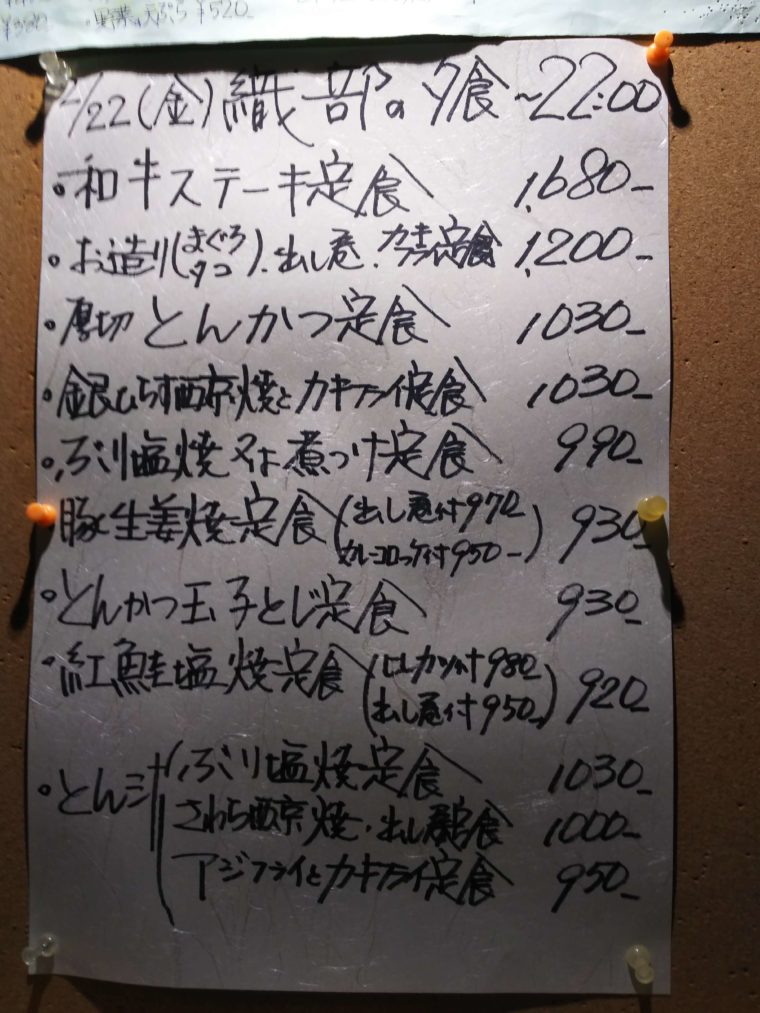 ¥380
¥520-
2/22(金)織部の夕食~22:00
・和牛ステーキ定食 1,680-
・お造り(まぐろ タコ)、出し巻、カキフライ定食 1,200-
・厚切とんかつ定食 1,030-
・銀ひらす西京焼とカキフライ定食 1,030-
・ぶり塩焼又は煮つけ定食 990-
豚生姜焼定食(出し巻付970- カレーコロッケ付950-) 930-
・とんかつ玉子とじ定食 930-
・紅鮭塩焼定食(ヒレカツ付980- 出し巻付950-) 920-
・とん汁 ぶり塩焼定食 1030-
さわら西京焼・出し巻定食 1000-
アジフライとカキフライ定食 950-